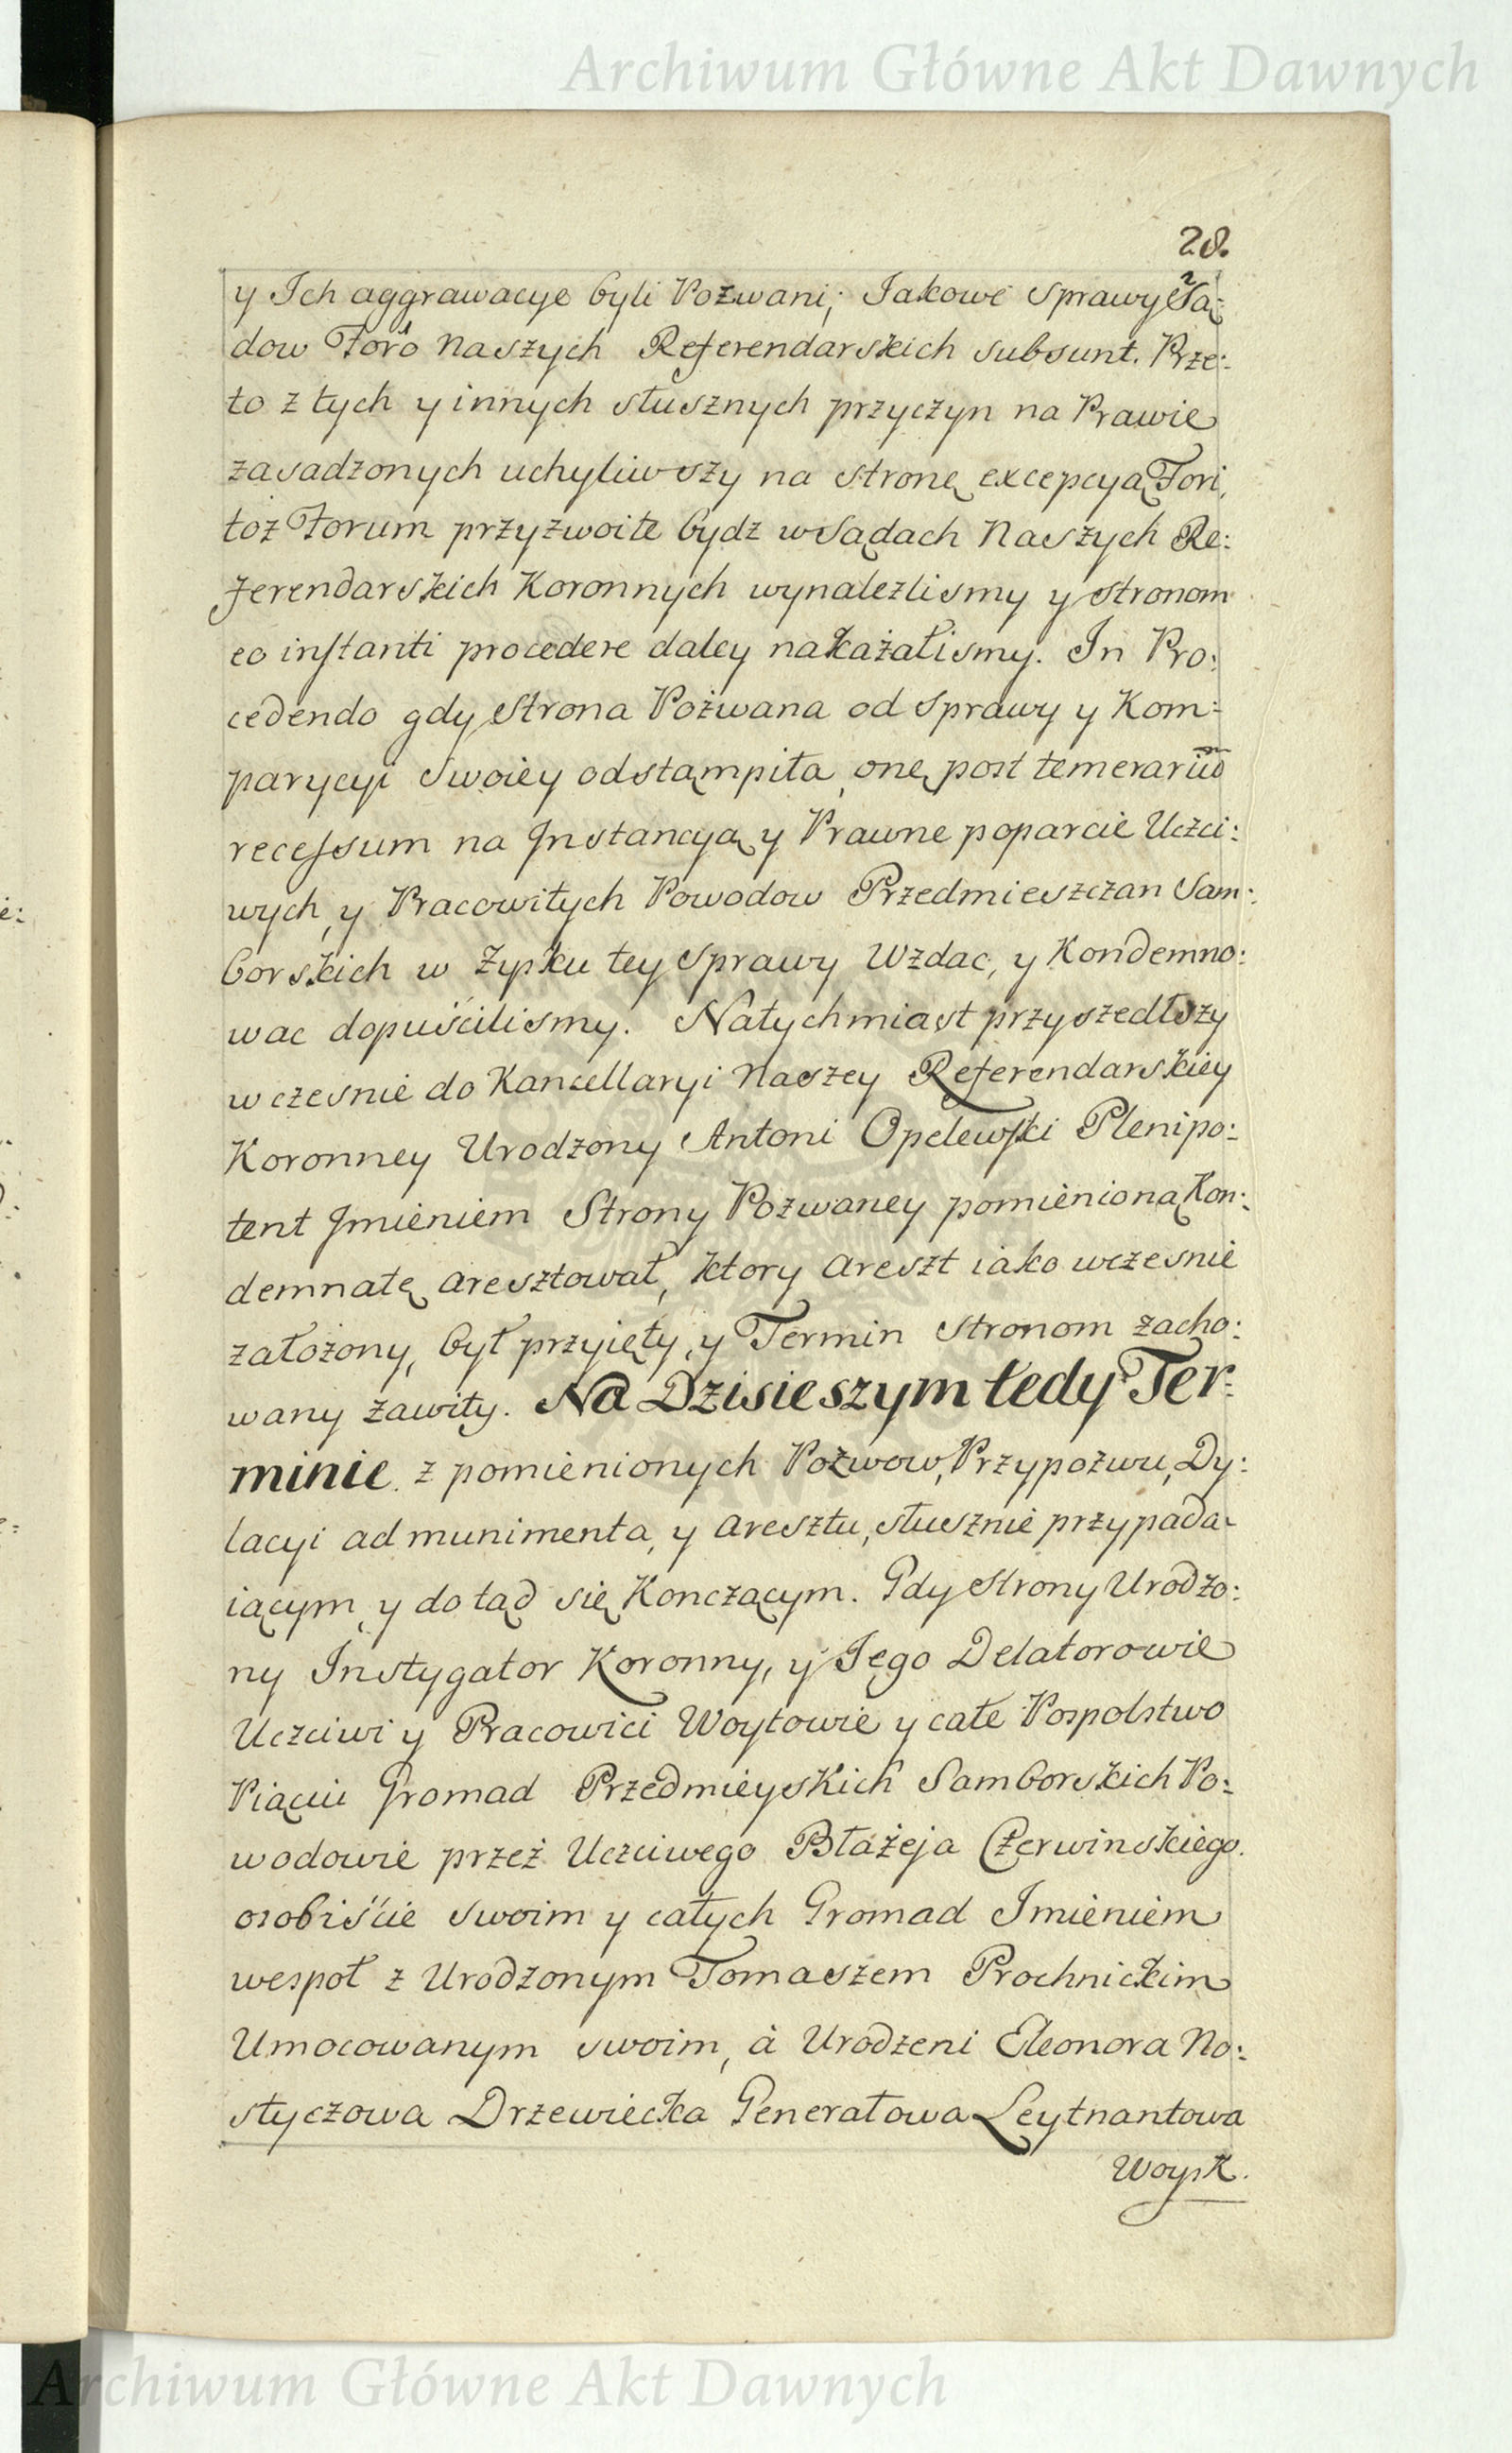 Archiwum Główne Akt Dawnych
28.
y Ich aggrawacye byli Pozwani; Jakowe Sprawy Są:
dow Foro Naszych Referendarskich subsunt. Prze:
to z tych y innych słusznych przyczyn na Prawie
zasadzonych uchyliwszy na stronę excepcyą Fori,
toż Forum przyzwoite bydz w Sądach Naszych Re:
ferendarskich Koronnych wynalezlismy y stronom
eo instanti procedere daley nakazalismy. In Pro:
cedendo gdy Strona Pozwana od Sprawy y Kom:
parycyi Swoiey odstąmpiła, onę post temerariū
recessum na Jnstancyą y Prawne poparcie Uczci:
wych, y Pracowitych Powodow Przedmieszczan Sam:
borskich w Zysku tey Sprawy Wzdac, y Kondemno:
wac dopuścilismy. Natychmiast przyszedłszy
w czesnie do Kancellaryi Naszey Referendarskiey
Koronney Urodzony Antoni Opelewski Plenipo:
tent Jmieniem Strony Pozwaney pomienioną Kon:
demnatę aresztował, ktory areszt iako wczesnie
założony, był przyięty, y Termin Stronom zacho:
wany zawity. Na Dzisieszym tedy Ter:
minie z pomienionych Pozwow, Przypozwu, Dy:
lacyi ad munimenta, y aresztu, słusznie przypada:
iącym, y do tąd się Konczącym. Gdy Strony Urodzo:
ny Instygator Koronny, y Jego Delatorowie
Uczciwi y Pracowici Woytowie y całe Pospolstwo
Piąciu Gromad Przedmieyskich Samborskich Po:
wodowie przez Uczciwego Błażeja Czerwinskiego.
osobiście swoim y całych Gromad Imieniem
wespoł z Urodzonym Tomaszem Prochnickim
Umocowanym swoim, à Urodzeni Eleonora No:
styczowa Drzewiecka Generałowa Leytnantowa
Woysk.
Archiwum Główne Akt Dawnych